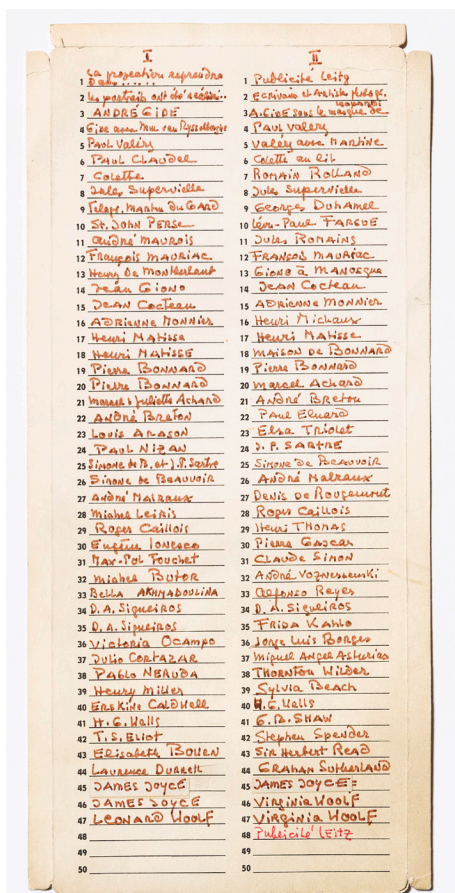 I
La projection reprendra
1 Dans ......
2 Les portraits ont été réalisés...
3 ANDRÉ GIDE
4 Gide avec Mme van Rysselberghe
5 PAUL Valéry
6 PAUL CLAUDEL
7 Colette
8 Jules Supervielle
9 Martin du GARD
10 ST. JOHN PERSE
11 André MAUROIS
12 François MAURIAC
13 Henry De Montherlant
14 Jean GIONO
15 JEAN Cocteau
16 ADRIENNE MONNIER
17 Henri MATISSE
18 Henri MATISSE
19 Pierre BONNARD
20 Pierre BONNARD
21 Marcel & Juliette ACHARD
22 ANDRÉ BRETON
23 LOUIS ARAGON
24 PAUL NIZAN
25 Simone de B. et J.P. Sartre
26 Simone de BEAUVOIR
27 André MALRAUX
28 Michel LEIRIS
29 Roger CAILLOIS
30 Eugène IONESCO
31 MAX-POL FOUCHET
32 Michel BUTOR
33 BELLA AKHMADOULINA
34 D.A. Siqueiros
35 D.A. Siqueiros
36 Victoria OCAMPO
37 Julio CORTAZAR
38 PABLO NERUDA
39 Henry Miller
40 ERSKINE CALDWELL
41 H.G. Wells
42 T.S. ELIOT
43 Elisabeth BOWEN
44 LAURENCE DURRELL
45 JAMES JOYCE
46 JAMES JOYCE
47 LEONARD WOOLF
48
49
50
II
1 Publicité Leitz
2 Ecrivains et Artistes photogr.
3 A. GIDE sous le masque de Leopardi
4 PAUL Valéry
5 Valéry avec MARTINE
6 Colette au lit
7 ROMAIN ROLLAND
8 Jules Supervielle
9 Georges DUHAMEL
10 Léon-Paul FARGUE
11 Jules ROMAINS
12 FRANÇOIS MAURIAC
13 GIONO à MANOSQUE
14 JEAN Cocteau
15 ADRIENNE MONNIER
16 Henri Michaux
17 Henri MATISSE
18 MAISON DE BONNARD
19 Pierre BONNARD
20 Marcel Achard
21 André Breton
22 PAUL ELUARD
23 ELSA TRIOLET
24 J.P. SARTRE
25 Simone de BEAUVOIR
26 André MALRAUX
27 Denis de Rougemont
28 Roger Caillois
29 Henri THOMAS
30 Pierre GASCAR
31 CLAUDE SIMON
32 André VOZNESSENSKI
33 Alfonso Reyes
34 D.A. Siqueiros
35 FRIDA KAHLO
36 Jorge Luis Borges
37 Miguel Angel Asturias
38 THORNTON WILDER
39 Sylvia Beach
40 H.G. Wells
41 G.B. SHAW
42 Stephen Spender
43 SIR Herbert READ
44 GRAHAM SUTHERLAND
45 JAMES JOYCE
46 Virginia WOOLF
47 VIRGINIA WOOLF
48 Publicité LEITZ
49
50